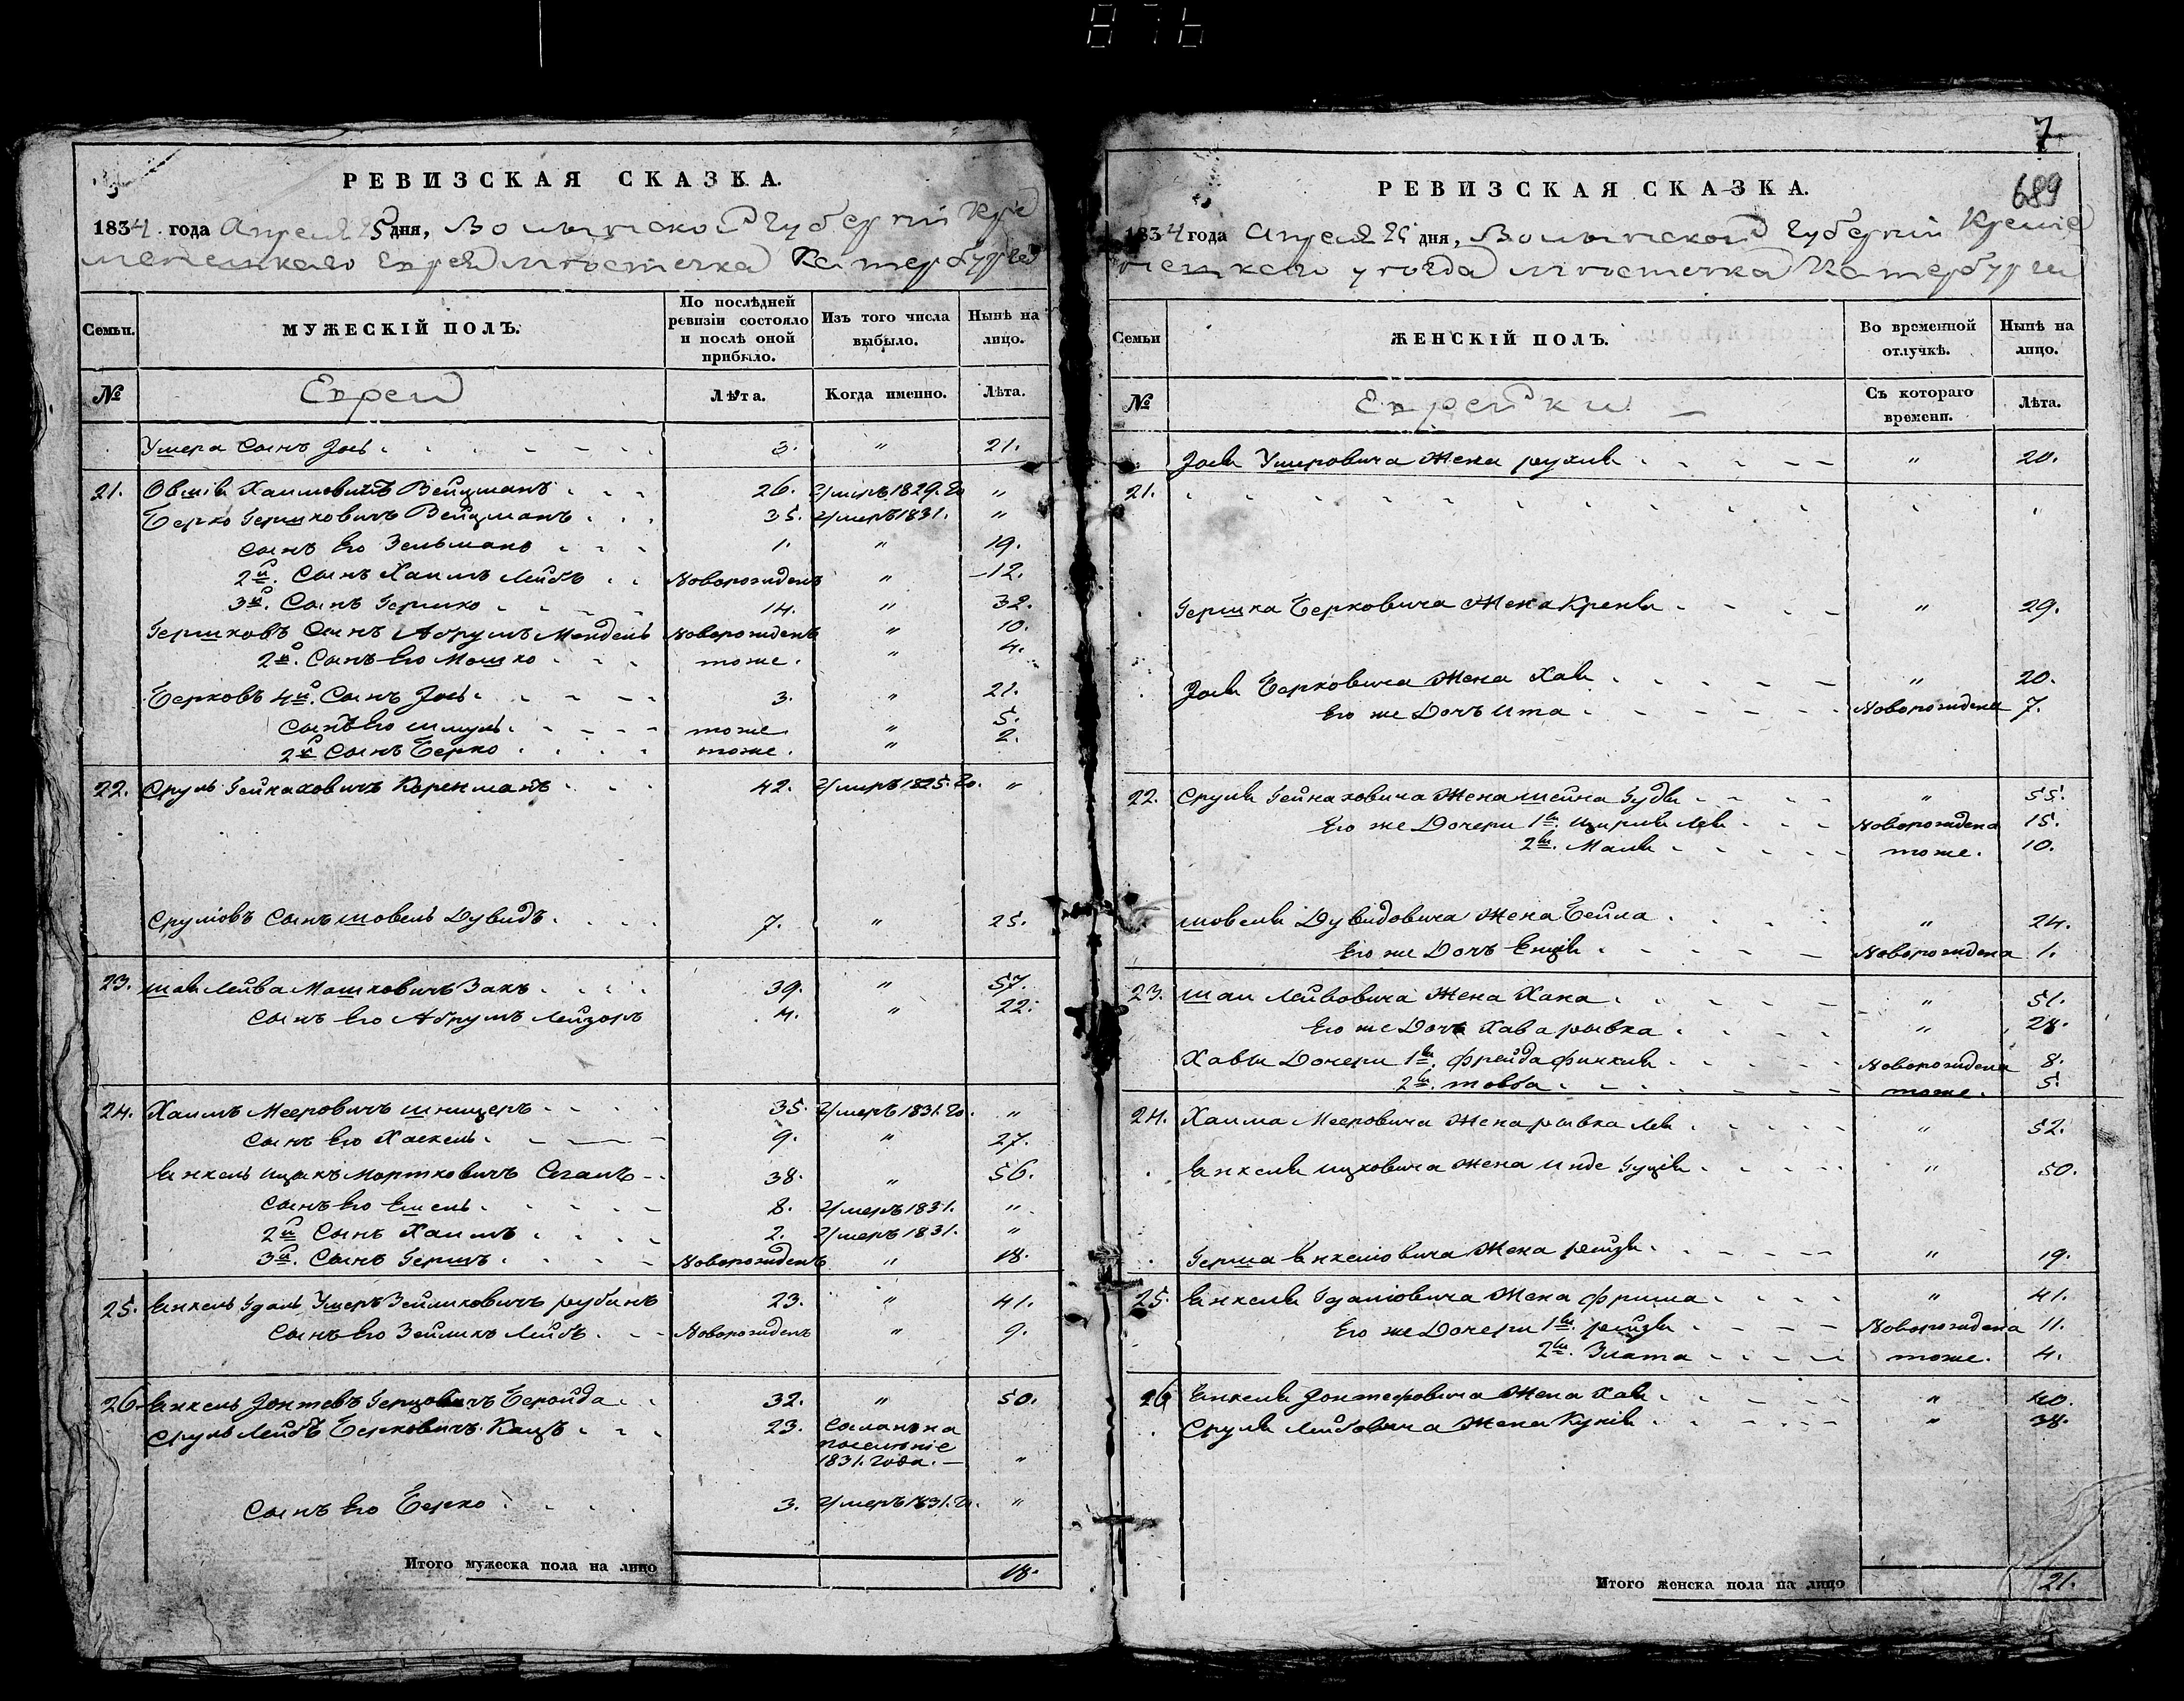 876
РЕВИЗСКАЯ СКАЗКА.
1834 года Апреля 25 дня, Волынской Губерніи Кре
менецкаго мѣстечка Катербурга
Семьи.
МУЖЕСКІЙ ПОЛЪ.
По послѣдней ревизіи состояло и послѣ оной прибыло.
Изъ того числа выбыло.
Нынѣ на лицо.
№
Евреи
Лѣта.
Когда именно.
Лѣта.
Умера Сынъ Јось 3. " 21.
21. Овшія Хаимовичъ Вейцманъ 26. Умиръ 1829. го "
Берко Гершковичъ Вейцманъ 35. Умеръ 1831. "
Сынъ Его Зельманъ 1. " 19.
2й. Сынъ Хаимъ Лейбъ Новорожденъ " 12.
3й. Сынъ Гершко 14. " 32.
Гершковъ Сынъ Абрумъ Мендель Новорожденъ " 10.
2й. Сынъ Его Мошко тоже. " 4.
Берковъ 4й. Сынъ Јось 3. " 21.
Сынъ Его Шмуль тоже " 5.
2й Сынъ Берко тоже. " 2.
22. Сруль Гейнаховичъ Коренманъ 42. Умиръ 1825. го. "
Срулiовъ Сынъ Шовель Дувидъ 7. " 25.
23. Шая Лейба Мошковичъ Закъ 39. " 57.
Сынъ Его Абрумъ Лейзоръ 4. " 22.
24. Хаимъ Мееровичъ Шницеръ 35. Умеръ 1831. го. "
Сынъ Его Хаскель 9. " 27.
Янкель Ицикъ Мортковичъ Сеганъ 38. " 56.
Сынъ Его 8. Умеръ 1831. "
2й Сынъ Хаимъ 2. Умеръ 1831. "
3й. Сынъ Гершъ Новорожденъ " 18.
25. Янкель Удаль Умеръ Зейликовичъ рубинъ 23. " 41.
Сынъ Его Зейликъ Лейбъ Новорожденъ " 9.
26. Янкель Јонтевъ Герцовичъ Бероида 32. " 50.
Сруль Лейбъ Берковичъ Кацъ 23. Сосланъ на
поселѣніе
1831. года. "
Сынъ Его Берко 3. Умеръ 1831. го. "
Итого мужеска пола на лицо 18.
7
689
РЕВИЗСКАЯ СКАЗКА.
1834 года Апреля 25 дня, Волынской Губерніи Креме
нецкаго уѣзда мѣстечка Катербурга
Семьи
ЖЕНСКІЙ ПОЛЪ.
Во временной отлучкѣ.
Нынѣ на лицо.
№
Еврейки
Съ котораго времени.
Лѣта.
Јося Умеровича Жена рухля " 20.
21.
Гершка Берковича Жена Крейня " 29.
Јося Берковича Жена Хая " 20.
Его же Дочъ Ита Новорождена 7.
22. Сруля Гейнаховича Жена Шейна Гудя " 55.
Его же Дочери 1я. Цирля Лея Новорождена 15.
2я. Маля тоже. 10.
Шовеля Дувидовича Жена Бейла " 24.
Его же Дочъ Енця Новорождена 1.
23. Шаи Лейбовича Жена Хана " 51.
Его же Дочъ Хава рывка " 28.
Хавы Дочери 1я. Фрейда Финкля Новорождена 8.
2я. товба тоже. 5.
24. Хаима Мееровича Жена рывка Лея " 52.
Янкеля Ицковича Жена Инде Гуця " 50.
Герша Янкелiовича Жена рейзя " 19.
25. Янкеля Удалiовича Жена Фрима " 41.
Его же Дочери 1я. рейзя Новорождена 11.
2я. Злата тоже. 4.
26 Янкеля Јонтефовича Жена Хая " 40.
Сруля Лейбовича Жена Куня " 38.
Итого женска пола на лицо 21.